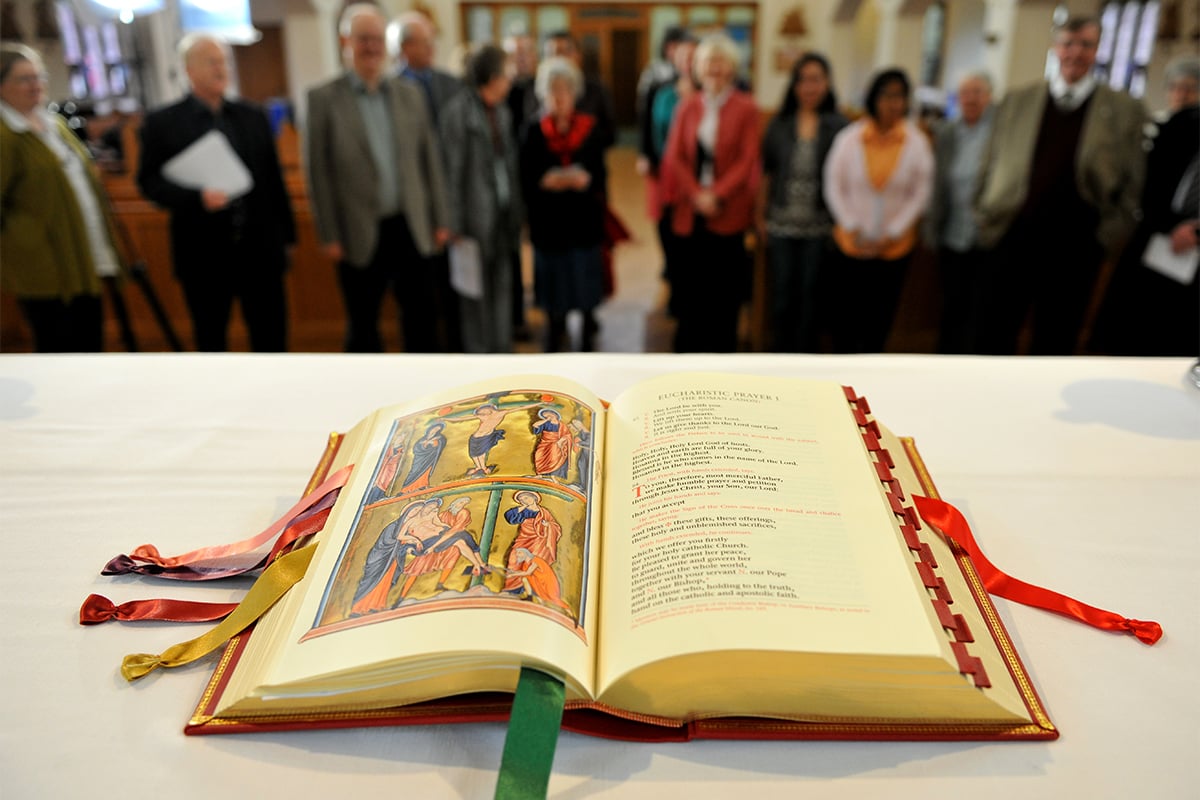 EUCHARISTIC PRAYER I
(THE ROMAN CANON)
The Lord be with you.
And with your spirit.
Lift up your hearts.
We lift them up to the Lord.
Let us give thanks to the Lord our God.
It is right and just.
Holy, Holy, Holy Lord God of hosts.
Heaven and earth are full of your glory.
Hosanna in the highest.
Blessed is he who comes in the name of the Lord.
Hosanna in the highest.
The Priest, with hands extended, says:
To you, therefore, most merciful Father,
we make humble prayer and petition
through Jesus Christ, your Son, our Lord:
He joins his hands and says:
that you accept
He makes the Sign of the Cross once over the bread and chalice
together, saying:
and bless ✠ these gifts, these offerings,
these holy and unblemished sacrifices,
With hands extended, he continues:
which we offer you firstly
for your holy catholic Church.
Be pleased to grant her peace,
to guard, unite and govern her
throughout the whole world,
together with your servant N. our Pope
and N. our Bishop,*
and all those who, holding to the truth,
hand on the catholic and apostolic faith.